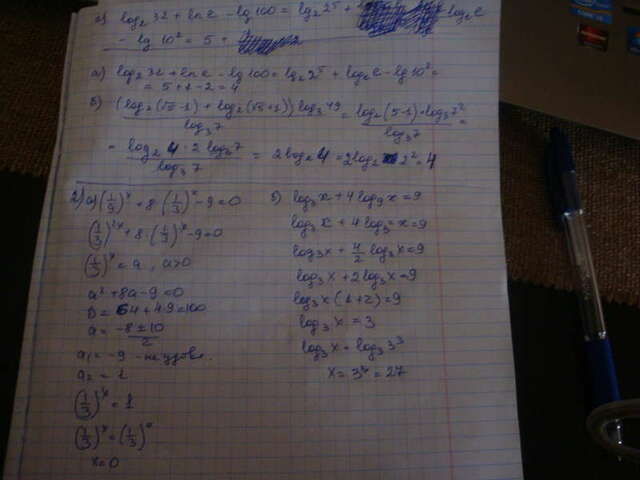 а) log₂32 + ln e - lg 100 = log₂2⁵ + log_e e
- lg 10² = 5 +
а) log₂32 + ln e - lg 100 = log₂2⁵ + log_e e - lg 10² =
= 5 + 1 - 2 = 4
б) (log₂(√5-1) + log₂(√5+1)) log₃49 / log₃7 = log₂(5-1)·log₃7² / log₃7 =
= log₂4 · 2 log₃7 / log₃7 = 2log₂4 = 2log₂2² = 4
2) а) (1/9)ˣ + 8·(1/3)ˣ - 9 = 0
(1/3)²ˣ + 8·(1/3)ˣ - 9 = 0
(1/3)ˣ = a, a>0
a² + 8a - 9 = 0
D = 64 + 49 = 100
a = -8 ± 10 / 2
a₁ = -9 - не удов.
a₂ = 1
(1/3)ˣ = 1
(1/3)ˣ = (1/3)⁰
x = 0
б) log₃x + 4log₉x = 9
log₃x + 4log₃²x = 9
log₃x + 4/2 log₃x = 9
log₃x + 2log₃x = 9
log₃x (1+2) = 9
log₃x = 3
log₃x = log₃3³
x = 3³ = 27